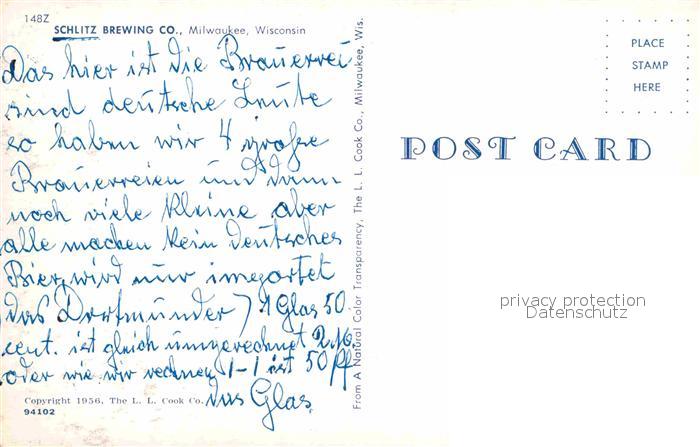 148Z
SCHLITZ BREWING CO., Milwaukee, Wisconsin
Das hier ist die Brauerrei
sind deutsche Leute
so haben wir 4 große
Brauerreien und dann
noch viele kleine aber
alle machen kein deutsches
Bier, wird nur imgortet
(das Dortmunder) 1 Glas 50
cent. ist gleich umgerechnet 2 M
oder wie wir rechnen 1-1 ist 50 Pf
das Glas
Copyright 1956, The L. L. Cook Co.
94102
From A Natural Color Transparency, The L. L. Cook Co., Milwaukee, Wis.
PLACE
STAMP
HERE
POST CARD
privacy protection
Datenschutz